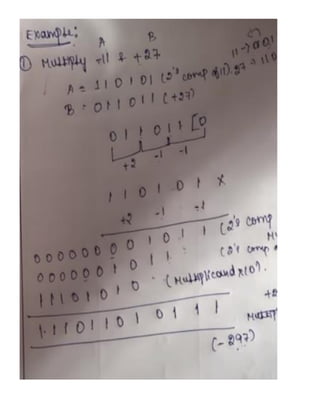 Example:
A B
① Multiply -11 & +27
A = 110101 (2's comp of 11)
B = 011011 (+27)
0 1 1 0 1 1 [0
+2 -1 -1
1 1 0 1 0 1 ×
+2 -1 -1
0 0 0 0 0 0 0 0 1 0 1 1 (2's comp
0 0 0 0 0 0 1 0 1 1 (2's comp
1 1 1 0 1 0 1 0 (Multiplicand × (0).
1 1 1 0 1 1 0 1 0 1 1 1
(-297)